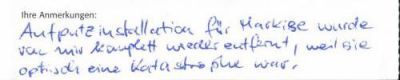 Ihre Anmerkungen:
Aufputzinstallation für Markise wurde
von mir komplett wieder entfernt, weil sie
optisch eine Katastrophe war.